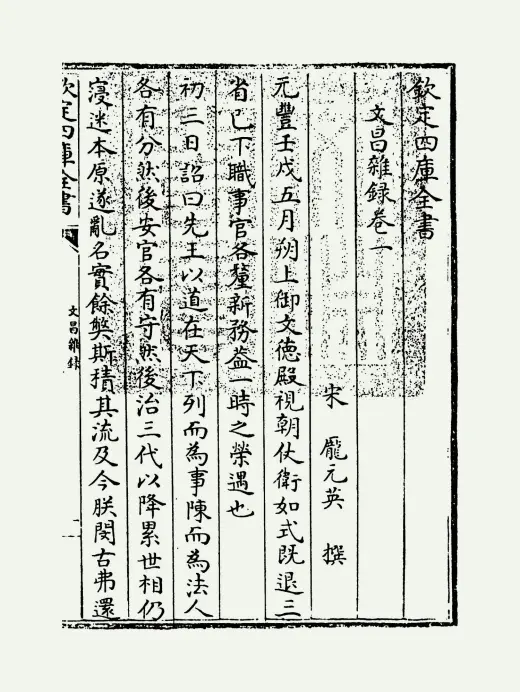 欽定四庫全書
文昌雜錄卷一
宋 龐元英 撰
元豐壬戌五月朔上御文德殿視朝仗衛如式既退三
省已下職事官各釐新務葢一時之榮遇也
初三日詔曰先王以道在天下列而為事陳而為法人
各有分然後安官各有守然後治三代以降累世相仍
寖迷本原遂亂名實餘弊斯積其流及今朕閔古弗還
欽定四庫全書
文昌雜録
一